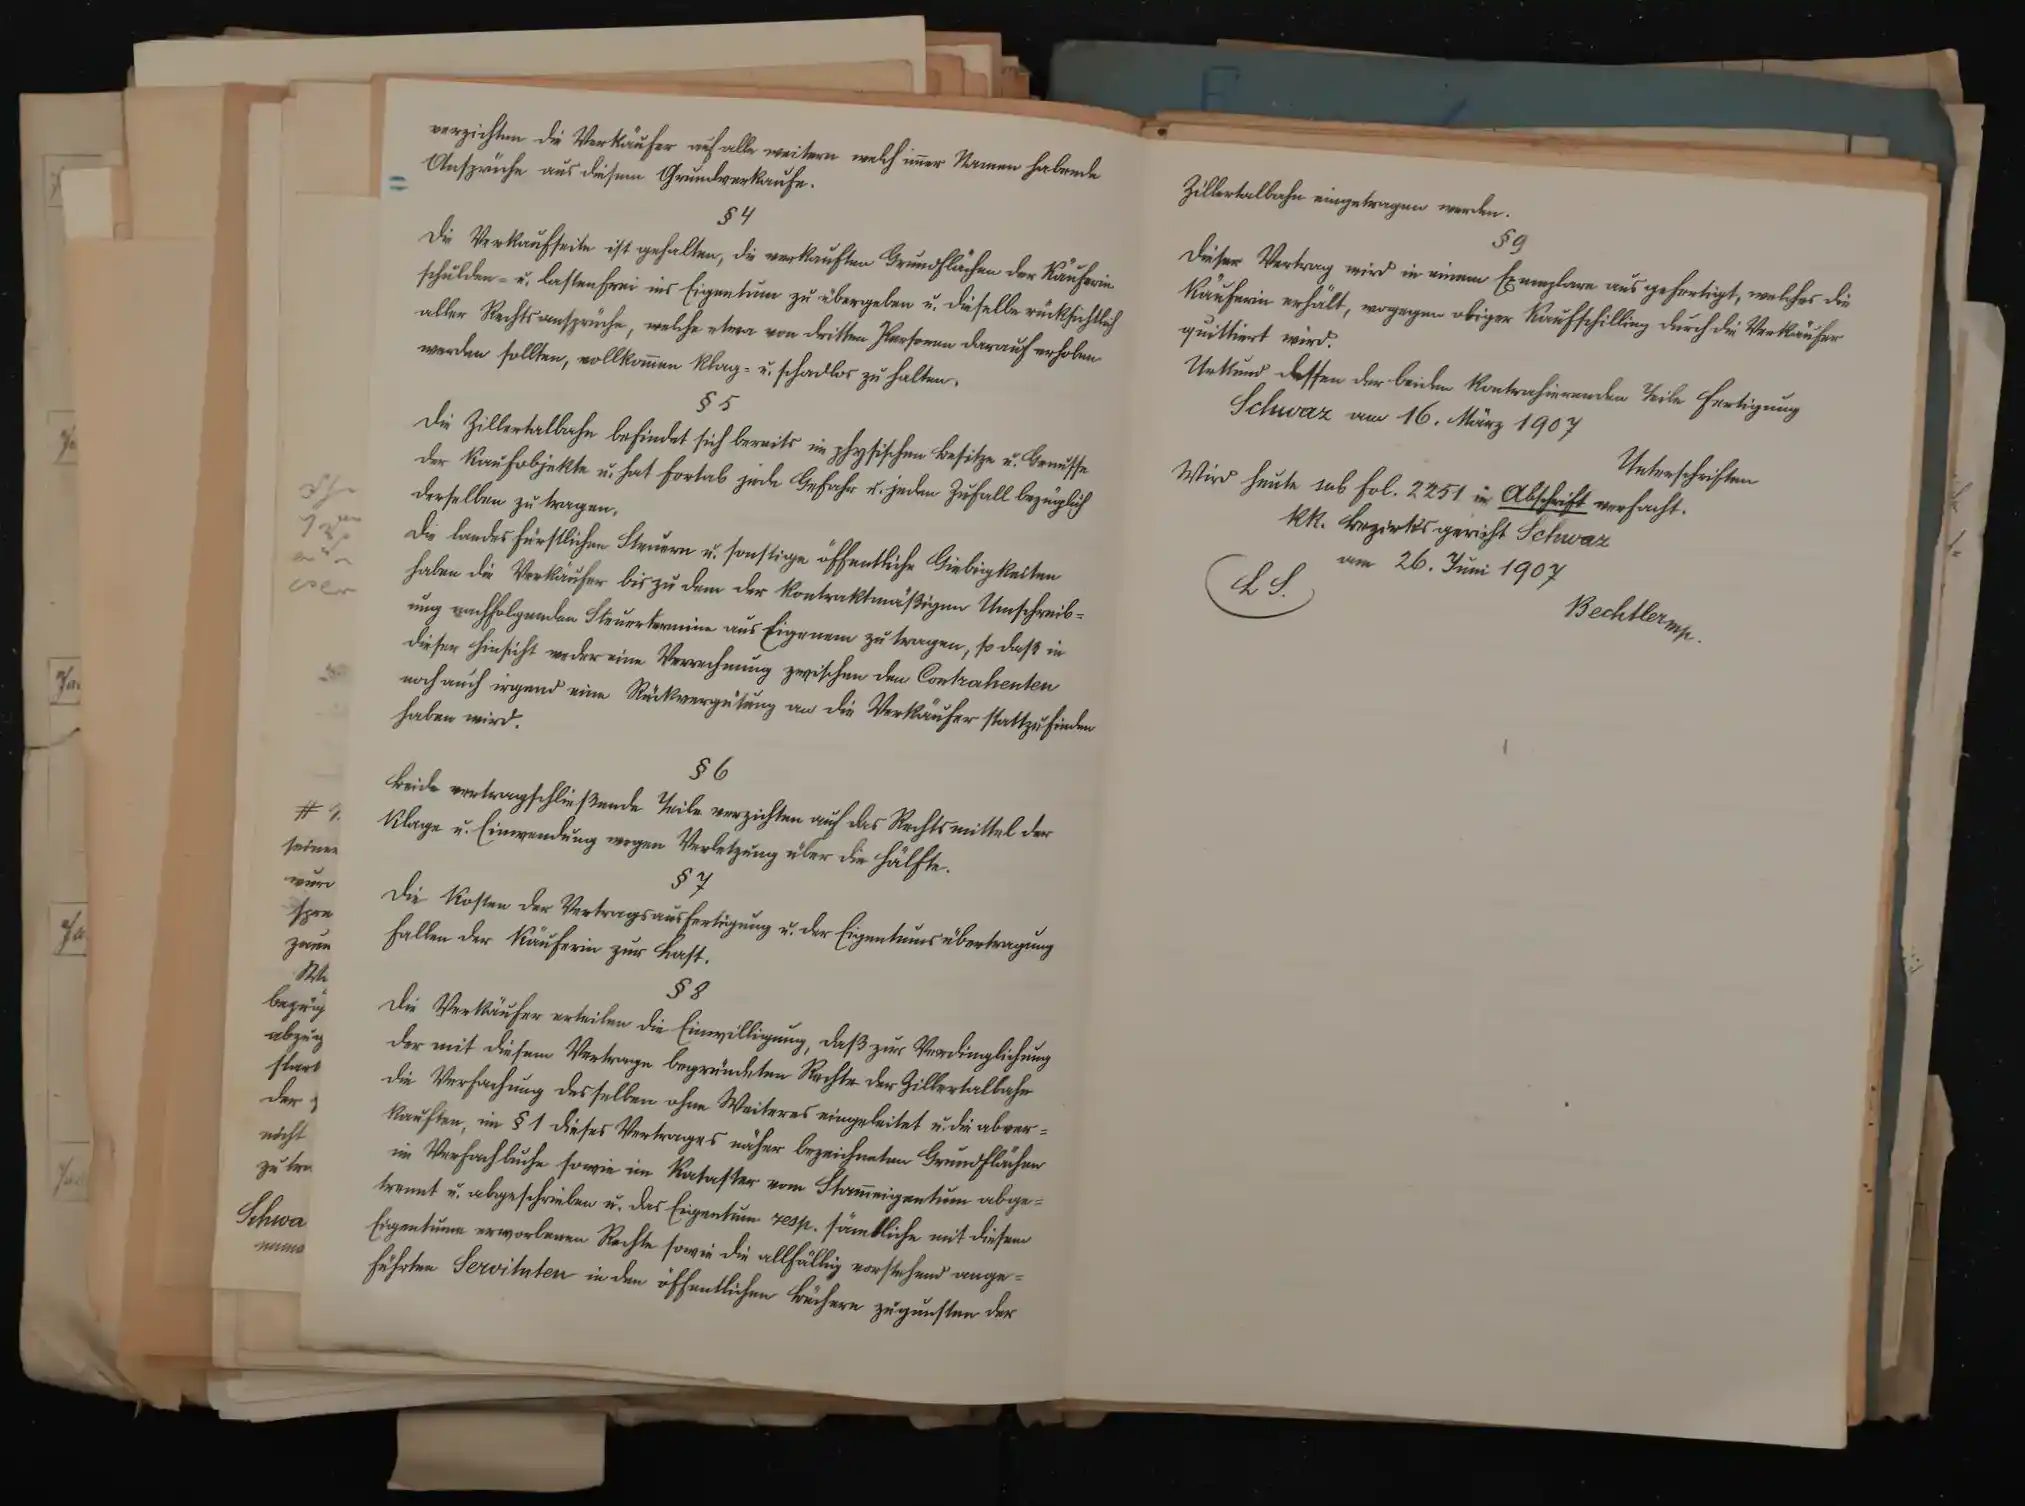 verzichten die Verkäufer auf alle weitern welch im̄er Namen habende
Ansprüche aus diesem Grundverkaufe.
§ 4
Die Verkaufseite ist gehalten, die verkauften Grundflächen der Käuferin
schulden- u. lastenfrei ins Eigentum zu übergeben u. dieselbe rücksichtlich
aller Rechtsansprüche, welche etwa von dritten Personen darauf erhoben
werden sollten, vollkom̄en klag- u. schadlos zu halten.
§ 5
Die Zillertalbahn befindet sich bereits im physischen Besitze u. Genusse
der Kaufobjekte u. hat fortab jede Gefahr u. jeden Zufall bezüglich
derselben zu tragen.
Die landesfürstlichen Steuern u. sonstige öffentliche Giebigkeiten
haben die Verkäufer bis zu dem der kontraktmäßigen Umschreib=
ung nachfolgenden Steuertermine aus Eigenem zu tragen, so daß in
dieser Hinsicht weder eine Verrechnung zwischen den Contrahenten
noch auch irgend eine Rückvergütung an die Verkäufer stattzufinden
haben wird.
§ 6
Beide vertragschließende Teile verzichten auf das Rechtsmittel der
Klage u. Einwendung wegen Verletzung über die Hälfte.
§ 7
Die Kosten der Vertragsausfertigung u. der Eigentumsübertragung
fallen der Käuferin zur Last.
§ 8
Die Verkäufer erteilen die Einwilligung, daß zur Verdinglichung
der mit diesem Vertrage begründeten Rechte der Zillertalbahn
die Verfachung desselben ohne Weiteres eingeleitet u. die abver=
kauften, im § 1 dieses Vertrages näher bezeichneten Grundflächen
im Verfachbuche sowie im Kataster vom Stam̄eigentum abge=
trennt u. abgeschrieben u. das Eigentum resp. sämtliche mit diesem
Eigentume erworbenen Rechte sowie die allfällig vorstehend ange=
führten Servituten in den öffentlichen Büchern zugunsten der
Zillertalbahn eingetragen werden.
§ 9
Dieser Vertrag wird in einem Exemplare ausgefertigt, welches die
Käuferin erhält, wogegen obiger Kaufschilling durch die Verkäufer
quittiert wird.
Urkund dessen der beiden kontrahierenden Teile Fertigung
Schwaz am 16. März 1907
Unterschriften
Wird heute sub fol. 2251 in Abschrift verfacht.
kk. Bezirksgericht Schwaz
am 26. Juni 1907
L S.
Bechtler mp.